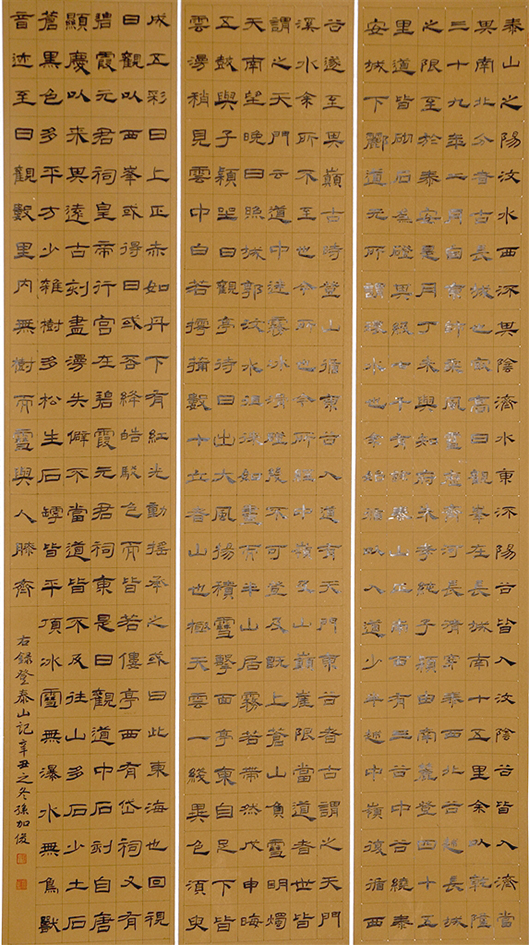 泰山之陽汶水西流其陰濟水東流陽谷皆入汶陰谷皆入濟當
其南北分者古長城也最高日觀峯在長城南十五里余以乾隆
三十九年十二月自京師乘風雪歷齊河長清穿泰西北谷越長城
之限至於泰安是月丁未與知府朱孝純子潁由南麓登四十五
里道皆砌石為磴其級七千有餘泰山正南面有三谷中谷繞泰
安城下酈道元所謂環水也余始循以入道少半越中嶺復循西
谷遂至其巔古時登山循東谷入道有天門東谷者古謂之天門
溪水余所不至也今所也今所經中嶺及山巔崖限當道者世皆
謂之天門云道中迷霧冰滑磴幾不可登及既上蒼山負雪明燭
天南望晚日照城郭汶水徂徠如畫而半山居霧若帶然戊申晦
五鼓與子潁坐日觀亭待日出大風揚積雪擊面亭東自足下皆
雲漫稍見雲中白若摴蒱數十立者山也極天雲一線異色須臾
成五彩日上正赤如丹下有紅光動搖承之或曰此東海也回視
日觀以西峯或得日或否絳皓駁色而皆若僂亭西有岱祠又有
碧霞元君祠皇帝行宮在碧霞元君祠東是日觀道中石刻自唐
顯慶以來其遠古刻盡漫失僻不當道皆不及往山多石少土石
蒼黑色多平方少雜樹多松生石罅皆平頂冰雪無瀑水無鳥獸
音迹至日觀數里內無樹而雪與人膝齊
右錄登泰山記辛丑之冬孫加俊